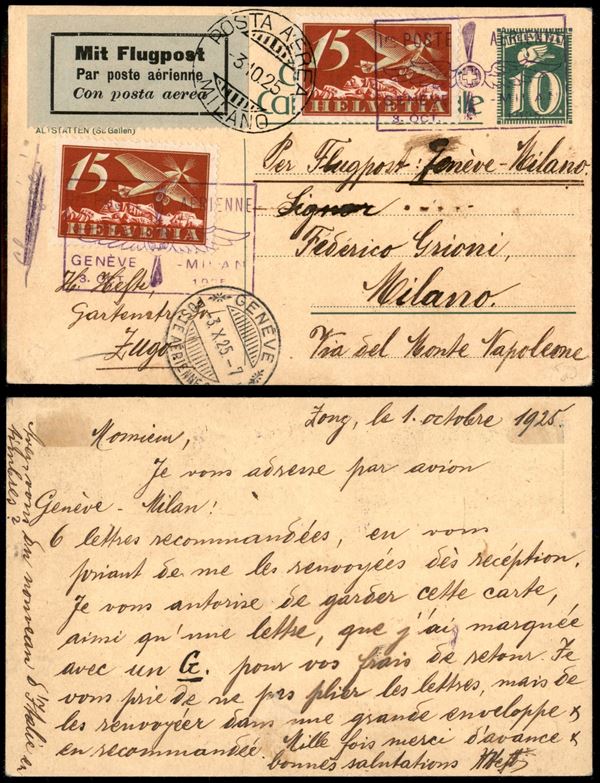 Mit Flugpost
Par poste aérienne
Con posta aerea
POSTA AEREA
3.10.25
MILANO
15
HELVETIA
POSTE
GENÈVE - MILAN
3. OCT.
HELVETIA
10
ALTSTÄTTEN (St. Gallen)
Per Flugpost: Genève-Milano
Signor
Federico Grioni,
Milano.
Via del Monte Napoleone
15
HELVETIA
AERIENNE
GENÈVE - MILAN
3. OCT. 1925
H. Hefti,
Gartenstr.
Zug
GENÈVE
3.X.25.-7
POSTE AÉRIENNE
Zoug, le 1. octobre 1925.
Monsieur,
Je vous adresse par avion
Genève - Milan!
6 lettres recommandées, en vous
priant de me les renvoyées dès recéption.
Je vous autorise de garder cette carte,
ainsi qu'une lettre, que j'ai marquée
avec un G. pour vos frais de retour. Je
vous prie de ne pas plier les lettres, mais de
les renvoyeer dans une grande enveloppe &
en recommandée. Mille fois merci d'avance &
bonnes salutations HHefti
du nouveau d'Italie